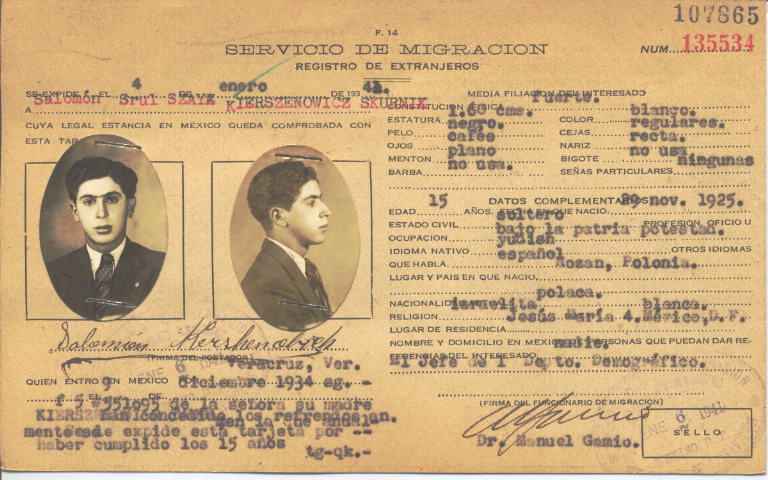 107865
F. 14
SERVICIO DE MIGRACION
NUM. 135534
REGISTRO DE EXTRANJEROS
SE EXPIDE EL 4 DE enero DE 193 41.
A Salomón Srul SZAYE KIERSZENOWICZ SKURNIK
CUYA LEGAL ESTANCIA EN MEXICO QUEDA COMPROBADA CON
ESTA TAR
MEDIA FILIACION DEL INTERESADO
CONSTITUCION FISICA fuerte.
ESTATURA 1.60 cms. COLOR blanco.
PELO negro. CEJAS regulares.
OJOS cafés NARIZ recta.
MENTON plano BIGOTE no usa.
BARBA no usa. SEÑAS PARTICULARES ningunas
DATOS COMPLEMENTARIOS
EDAD 15 AÑOS, FECHA EN QUE NACIO 29 nov. 1925.
ESTADO CIVIL soltero PROFESION, OFICIO U
OCUPACION bajo la patria potestad.
IDIOMA NATIVO yudish OTROS IDIOMAS
QUE HABLA español
LUGAR Y PAIS EN QUE NACIO Rozan, Polonia.
NACIONALIDAD polaca.
RELIGION israelita blanca.
LUGAR DE RESIDENCIA Jesús María 4.México,D.F.
NOMBRE Y DOMICILIO EN MEXICO PERSONAS QUE PUEDAN DAR RE-
FERENCIAS DEL INTERESADO nadie.
El Jefe de l Depto. Demográfico.
(FIRMA DEL FUNCIONARIO DE MIGRACION)
Dr. Manuel Gamio.
ENE 6 1941
SELLO
Salomón Kershenobich
(FIRMA DEL PORTADOR)
ENE 6 1941
Veracruz, Ver.
QUIEN ENTRO EN MEXICO
9 diciembre 1934 sg. -
f 5 #551095 de la señora su madre
KIERSZ
han concedido los refrendos an.
mente se expide esta tarjeta por --
haber cumplido los 15 años
tg-qk.-